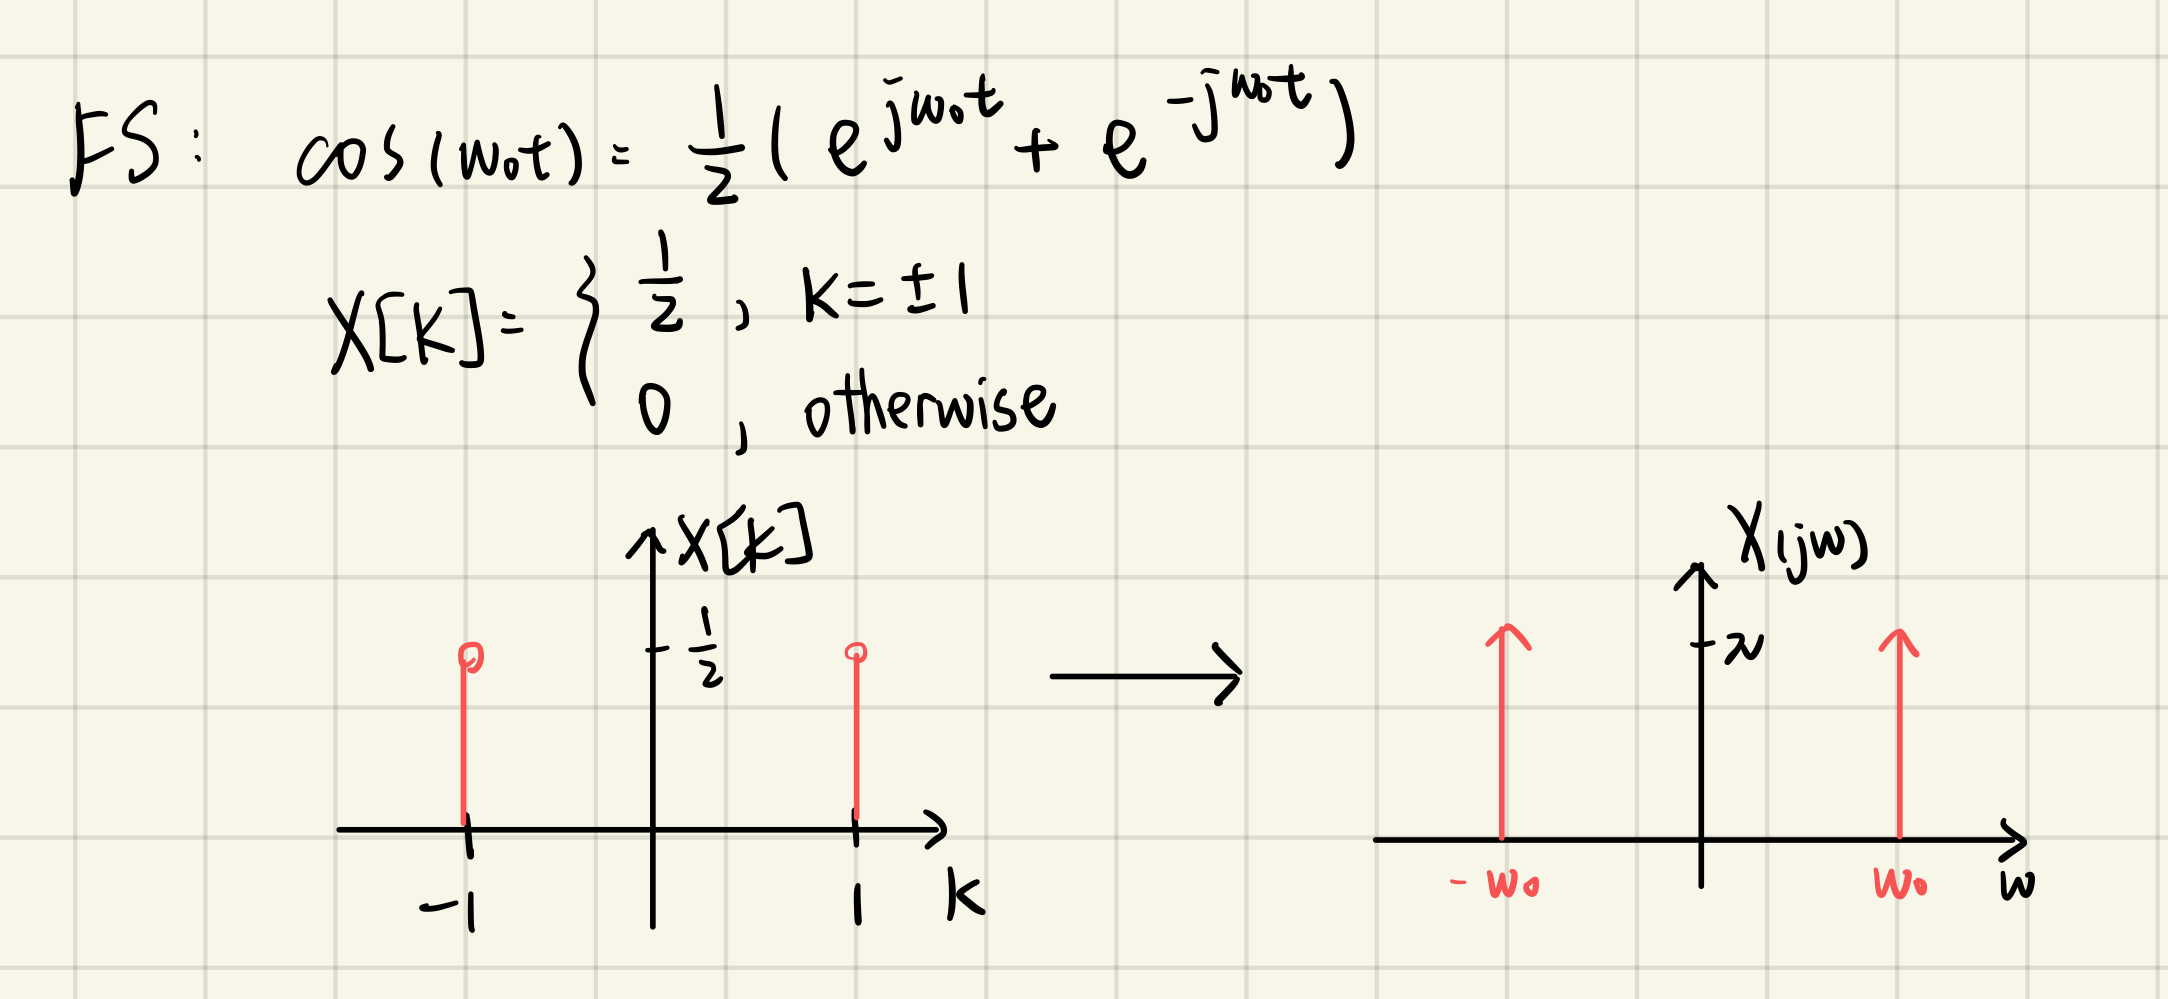 FS: cos(w₀t) = 1/2 (e^{jw₀t} + e^{-jw₀t})
X[k] = { 1/2 , k = ±1
0 , otherwise
X[k]
1/2
-1
1
k
X(jw)
π
-w₀
w₀
w